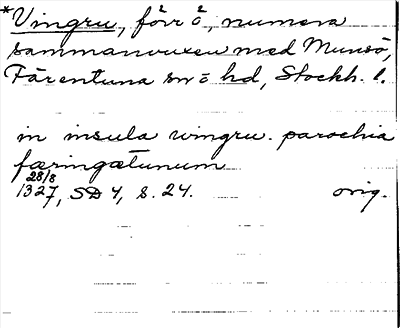 *Vingru, förr ö, numera
sammanvuxen med Munsö,
Färentuna sn o hd, Stockh. l.
in insula vingru. parochia
færingætunum
28/8
1327, SD 4, s. 24. orig.